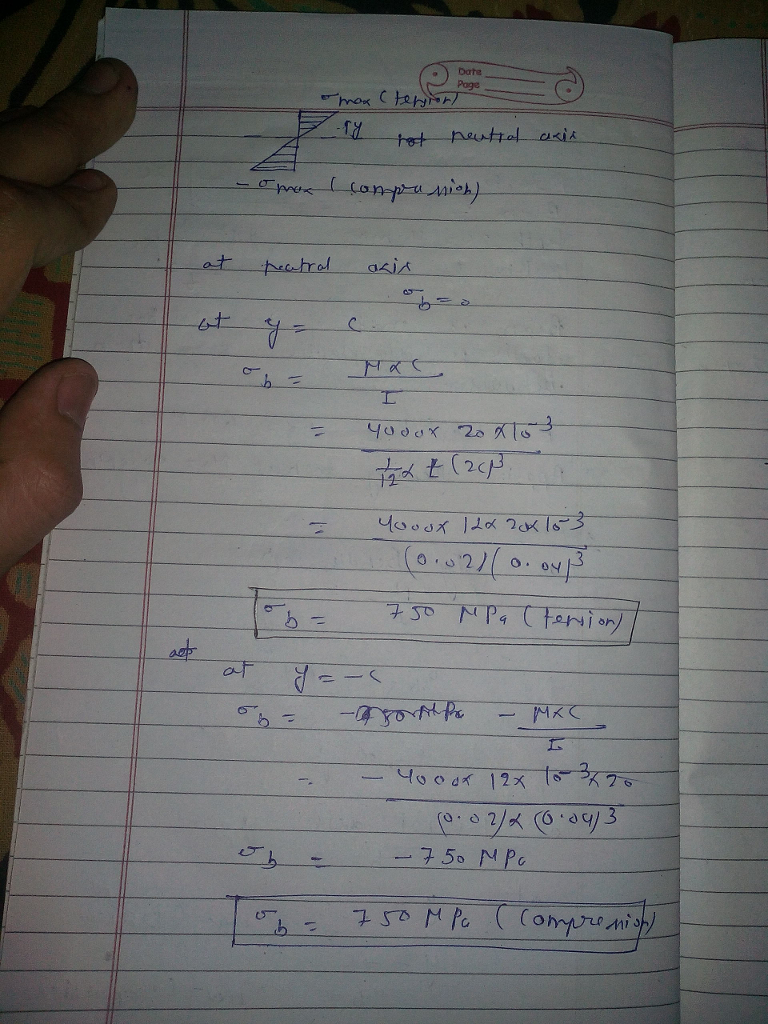 Date
Page
σmax (tension)
↑y neutral axis
- σmax (compression)
at neutral axis
σb = 0
at y = c
σb = M×C
I
= 4000× 20×10-3
1/12 × t (2c)3
= 4000× 12×20×10-3
(0.02)(0.04)3
σb = 750 MPa (tension)
at y = -c
σb = - M×C
I
= - 4000× 12× 10-3×20
(0.02)×(0.04)3
σb = -750 MPa
σb = 750 MPa (compression)